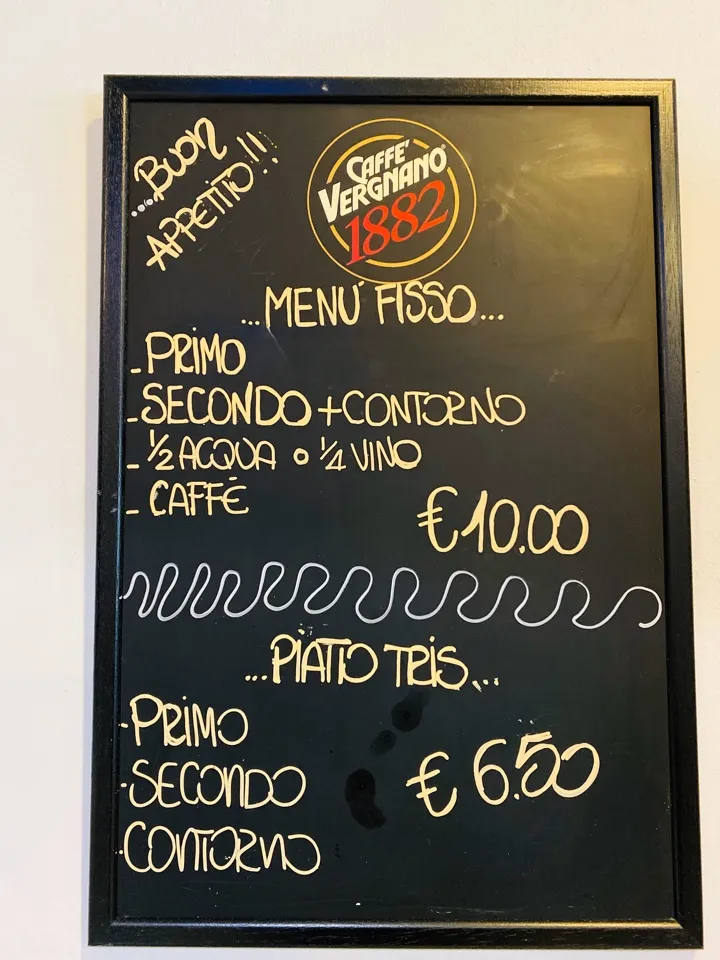 ...BUON
APPETITO!!
CAFFE'
VERGNANO®
1882
...MENU' FISSO...
- PRIMO
- SECONDO + CONTORNO
- 1/2 ACQUA O 1/4 VINO
- CAFFÈ
€10.00
...PIATTO TRIS...
- PRIMO
- SECONDO
- CONTORNO
€ 6.50